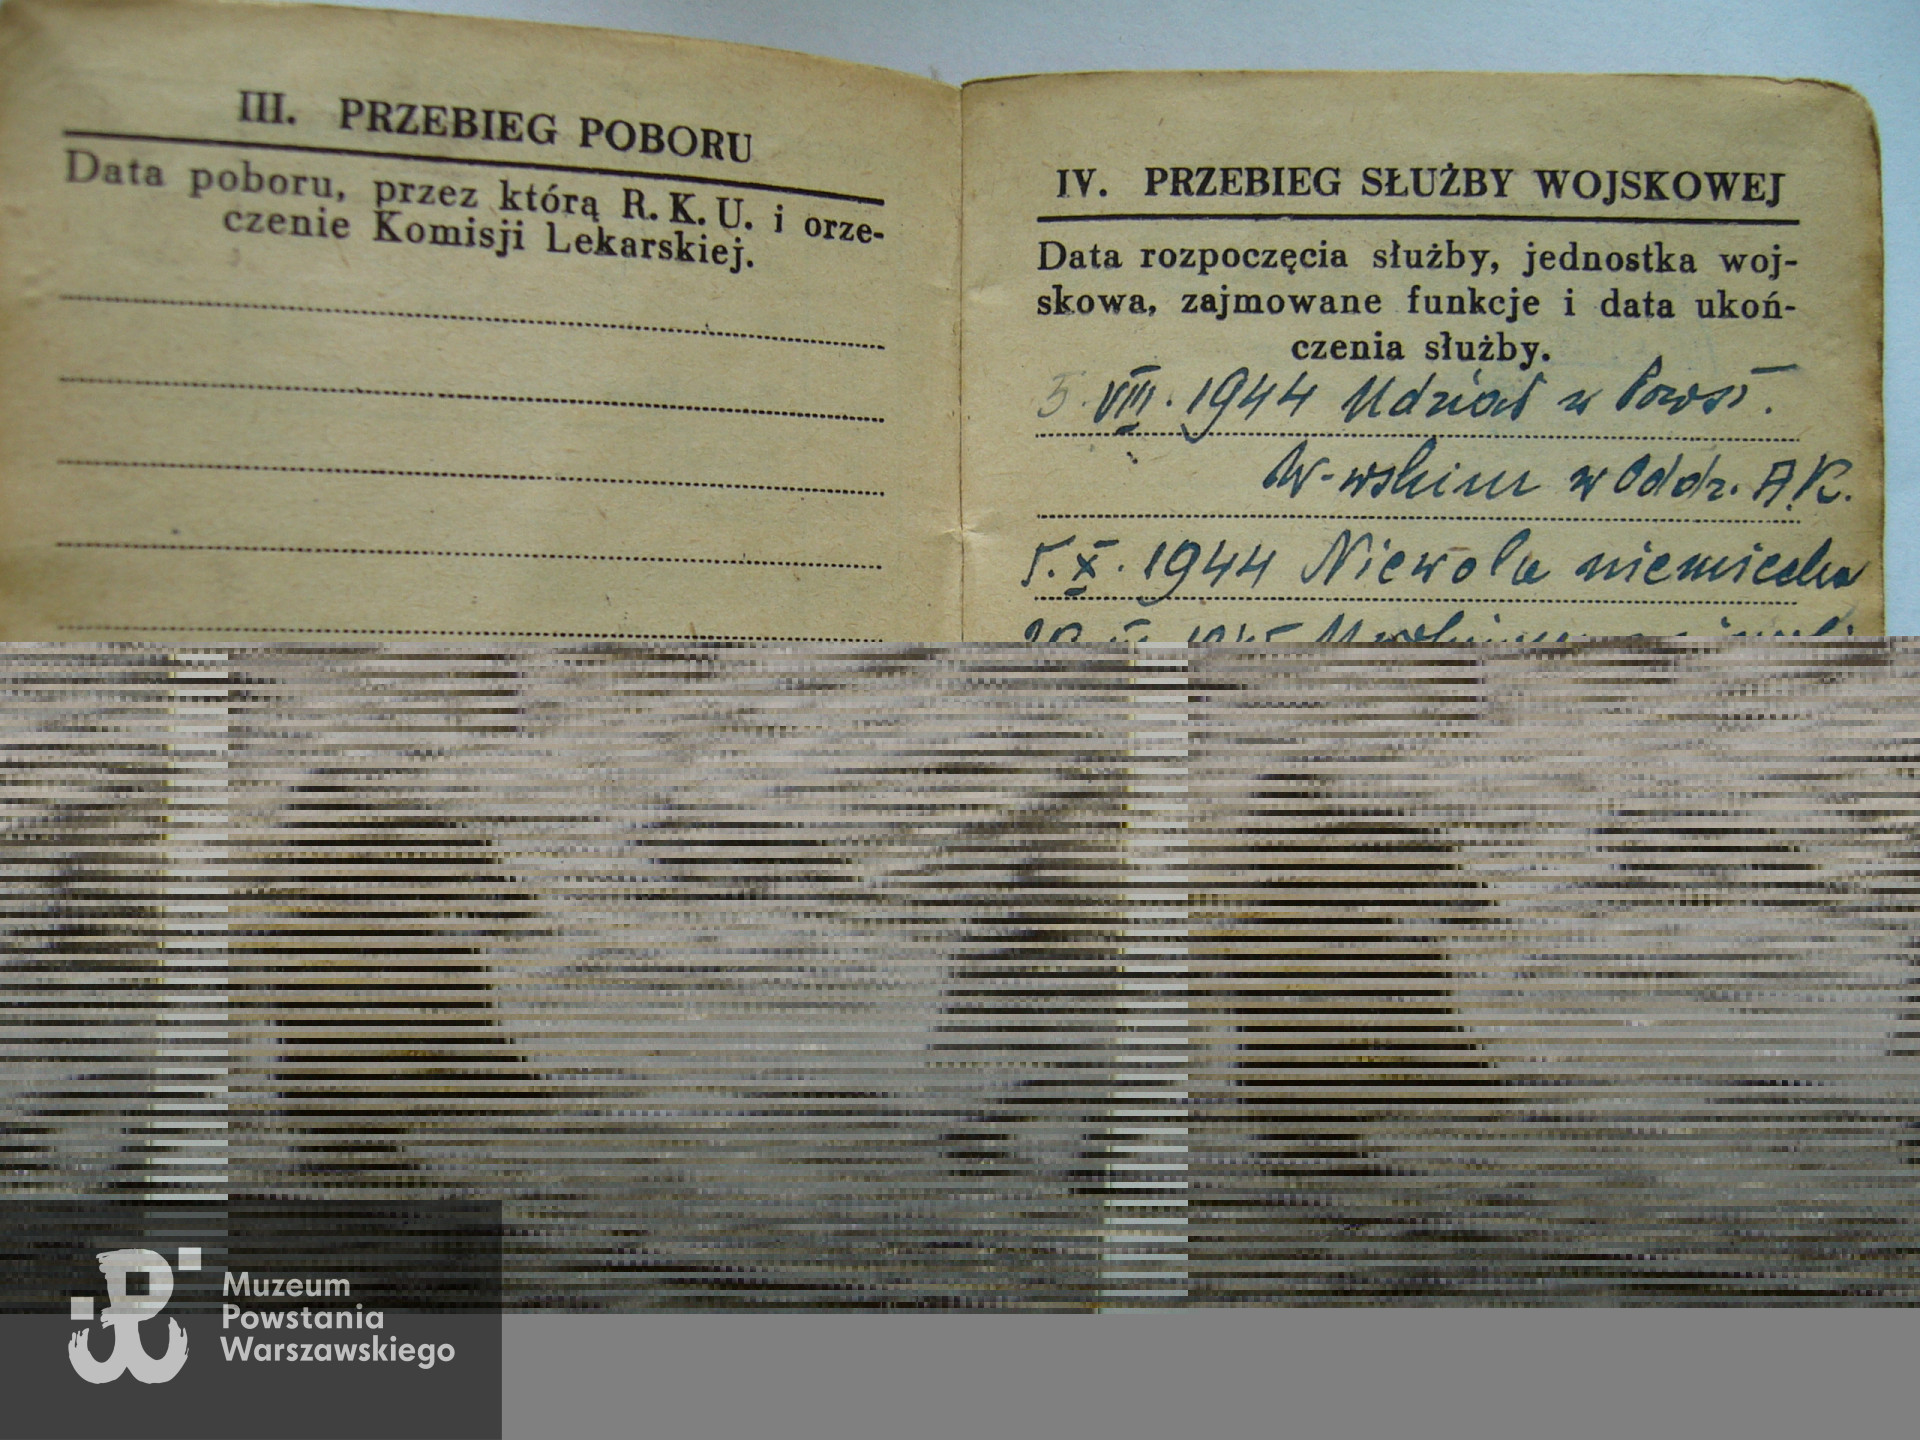 III. PRZEBIEG POBORU
Data poboru, przez którą R. K. U. i orze-
czenie Komisji Lekarskiej.
IV. PRZEBIEG SŁUŻBY WOJSKOWEJ
Data rozpoczęcia służby, jednostka woj-
skowa, zajmowane funkcje i data ukoń-
czenia służby.
5. VIII. 1944 Udział w Powst.
W-wskim w Oddz. A.K.
5. X. 1944 Niewola niemiecka
Muzeum
Powstania
Warszawskiego